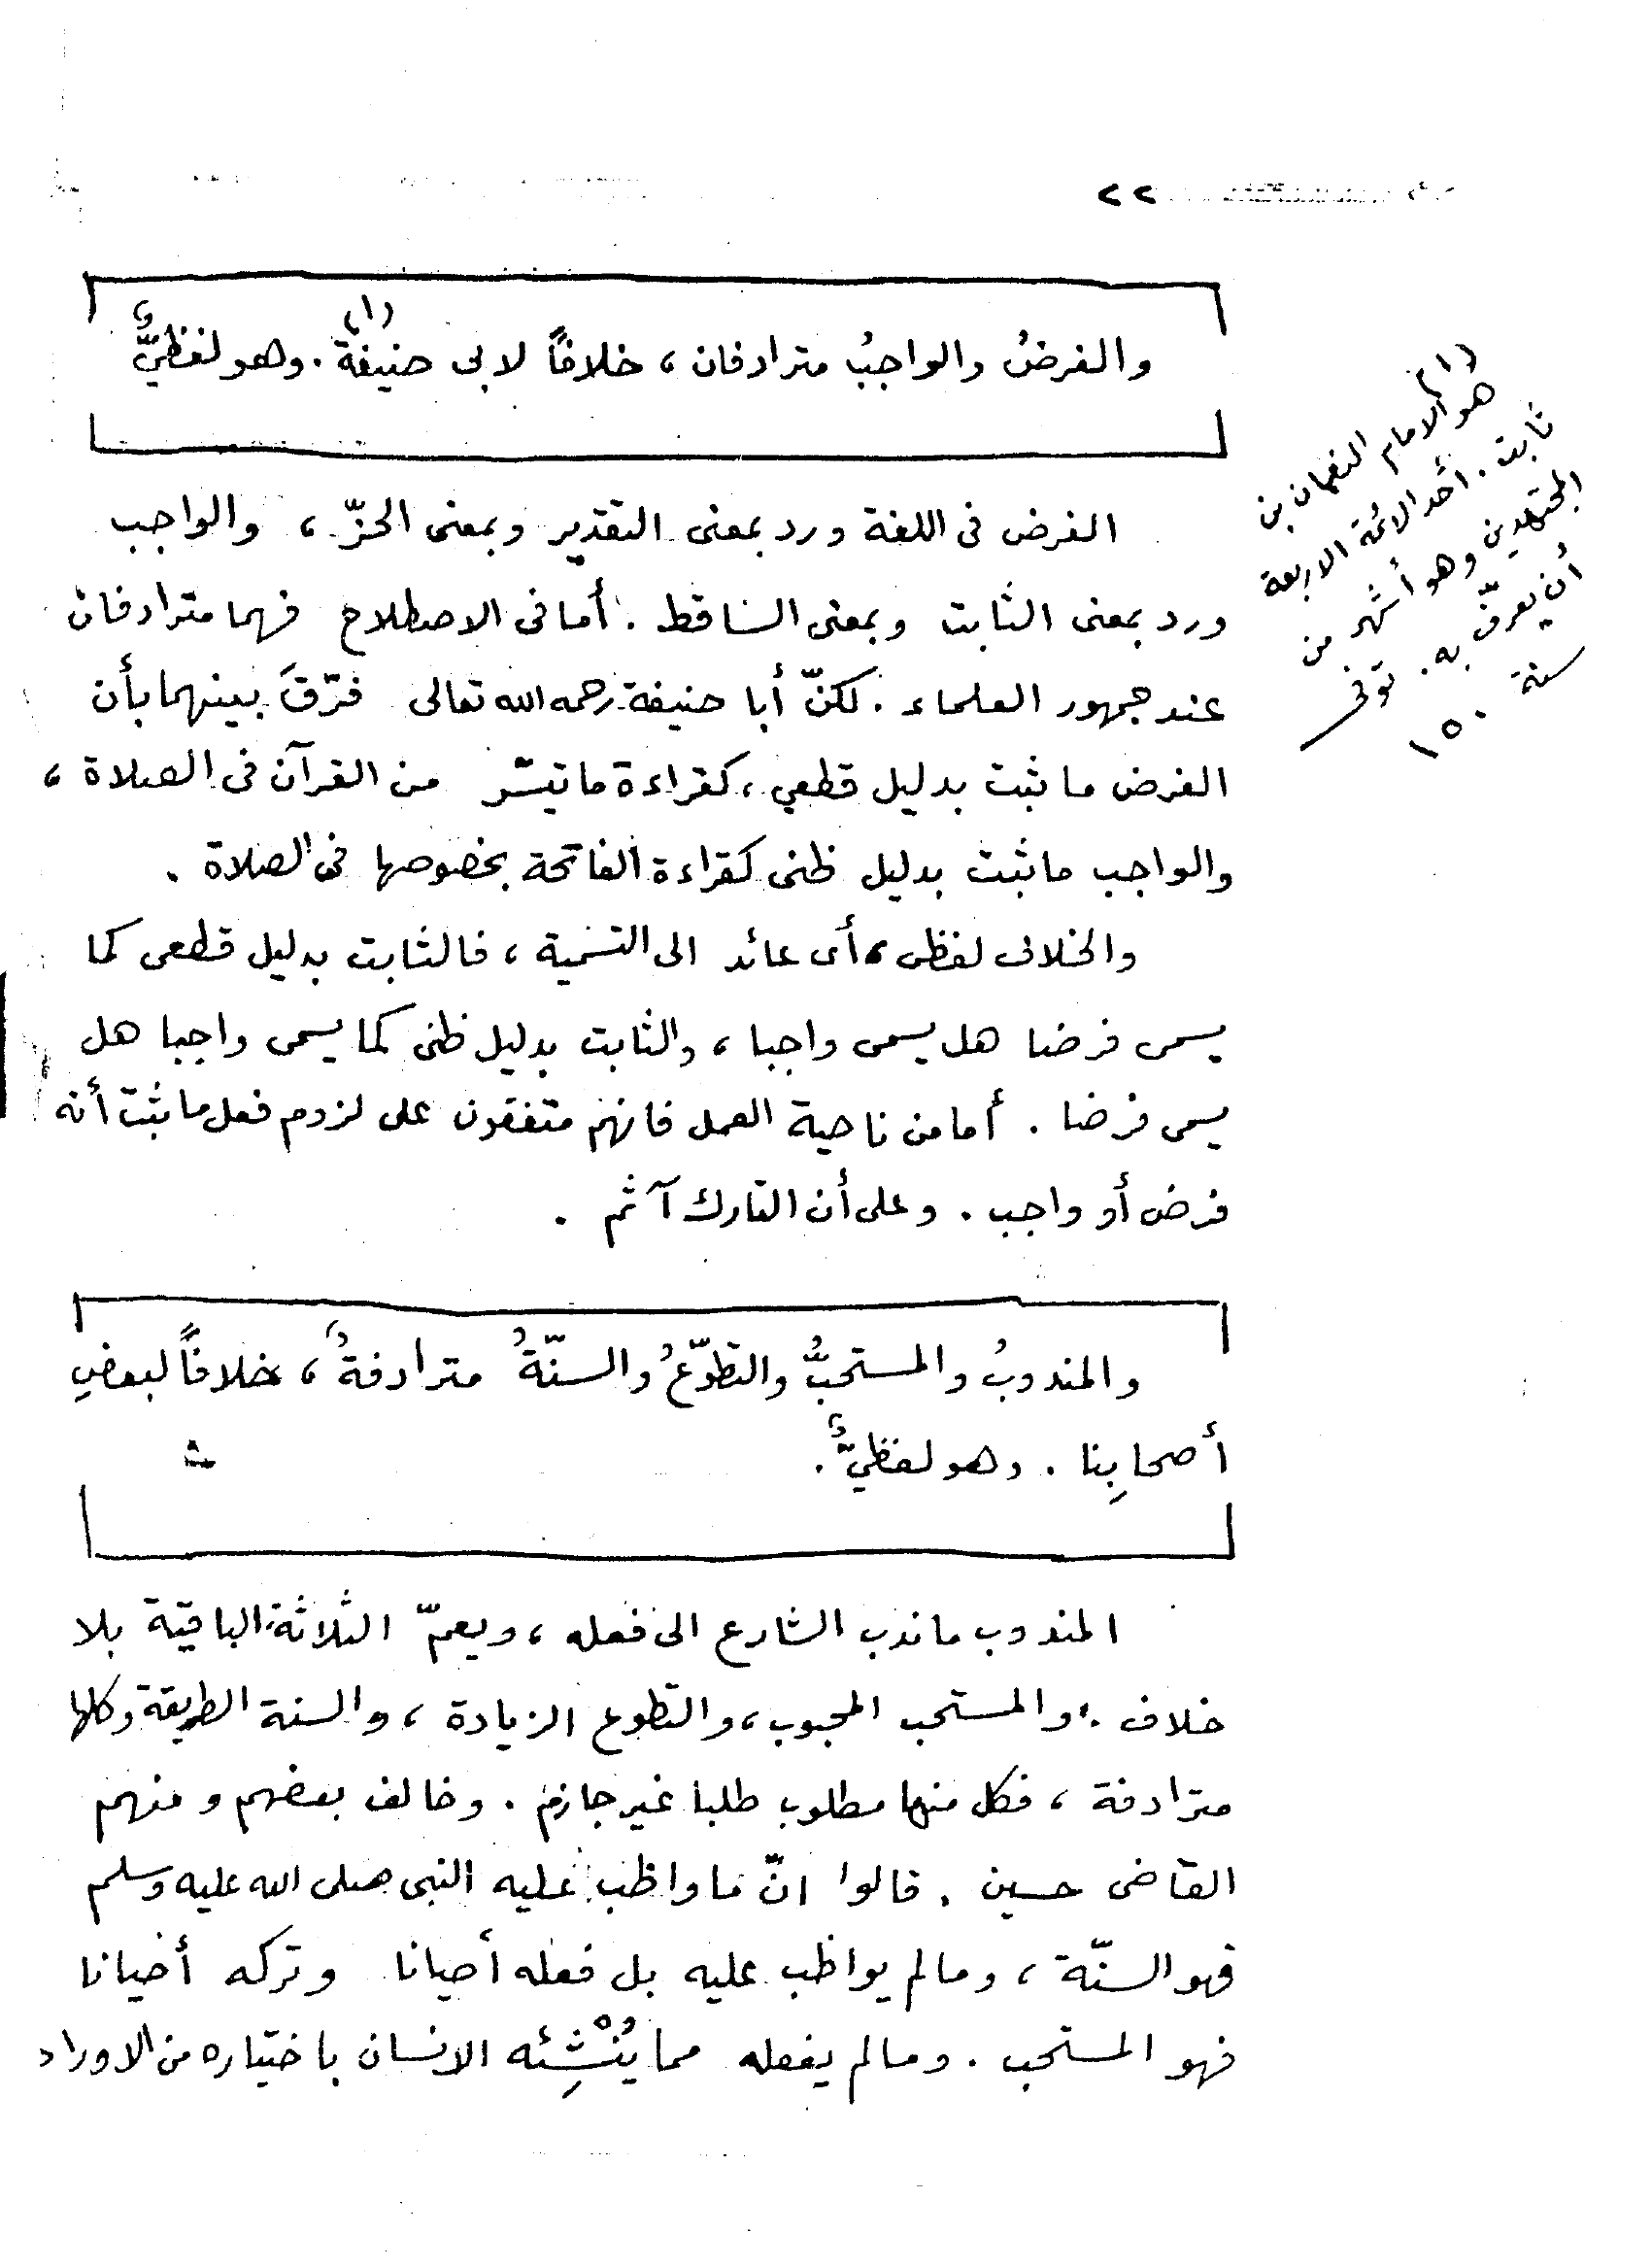 ٢٢
والفرضُ والواجبُ مترادفان ، خلافاً لابى حنيفة (١) . وهو لفظيٌّ
الفرض فى اللغة ورد بمعنى التقدير وبمعنى الحزّ ، والواجب
ورد بمعنى الثابت وبمعنى الساقط . أما فى الاصطلاح فهما مترادفان
عند جمهور العلماء . لكنّ أبا حنيفة رحمه الله تعالى فرّقَ بينهما بأن
الفرض ما ثبت بدليل قطعي ، كقراءة ما تيسّر من القرآن فى الصلاة ،
والواجب ما ثبت بدليل ظنى كقراءة الفاتحة بخصوصها فى الصلاة .
والخلاف لفظى ، أى عائد الى التسمية ، فالثابت بدليل قطعى كما
يسمى فرضا هل يسمى واجبا ، والثابت بدليل ظنى كما يسمى واجبا هل
يسمى فرضا . أما من ناحية العمل فانهم متفقون على لزوم فعل ما ثبت أنه
فرض أو واجب . وعلى أن التارك آثم .
والمندوبُ والمستحبُّ والتطوّعُ والسنّةُ مترادفةٌ ، خلافاً لبعضِ
أصحابِنا . وهو لفظيٌّ .
المندوب ما ندب الشارع الى فعله ، ويعمّ الثلاثة الباقية بلا
خلاف . والمستحب المحبوب ، والتطوع الزيادة ، والسنة الطريقة وكلها
مترادفة ، فكل منها مطلوب طلبا غير جازم . وخالف بعضهم ومنهم
القاضى حسين . قالوا انّ ما واظب عليه النبى صلى الله عليه وسلم
فهو السنّة ، وما لم يواظب عليه بل فعله أحيانا وتركه أحيانا
فهو المستحب . وما لم يفعله مما يُنْشِئه الانسان باختياره من الاوراد
(١)
هو الامام النعمان بن
ثابت . أحد الائمة الاربعة
المجتهدين وهو أشهر من
أن يعرّف به . توفى
سنة ١٥٠